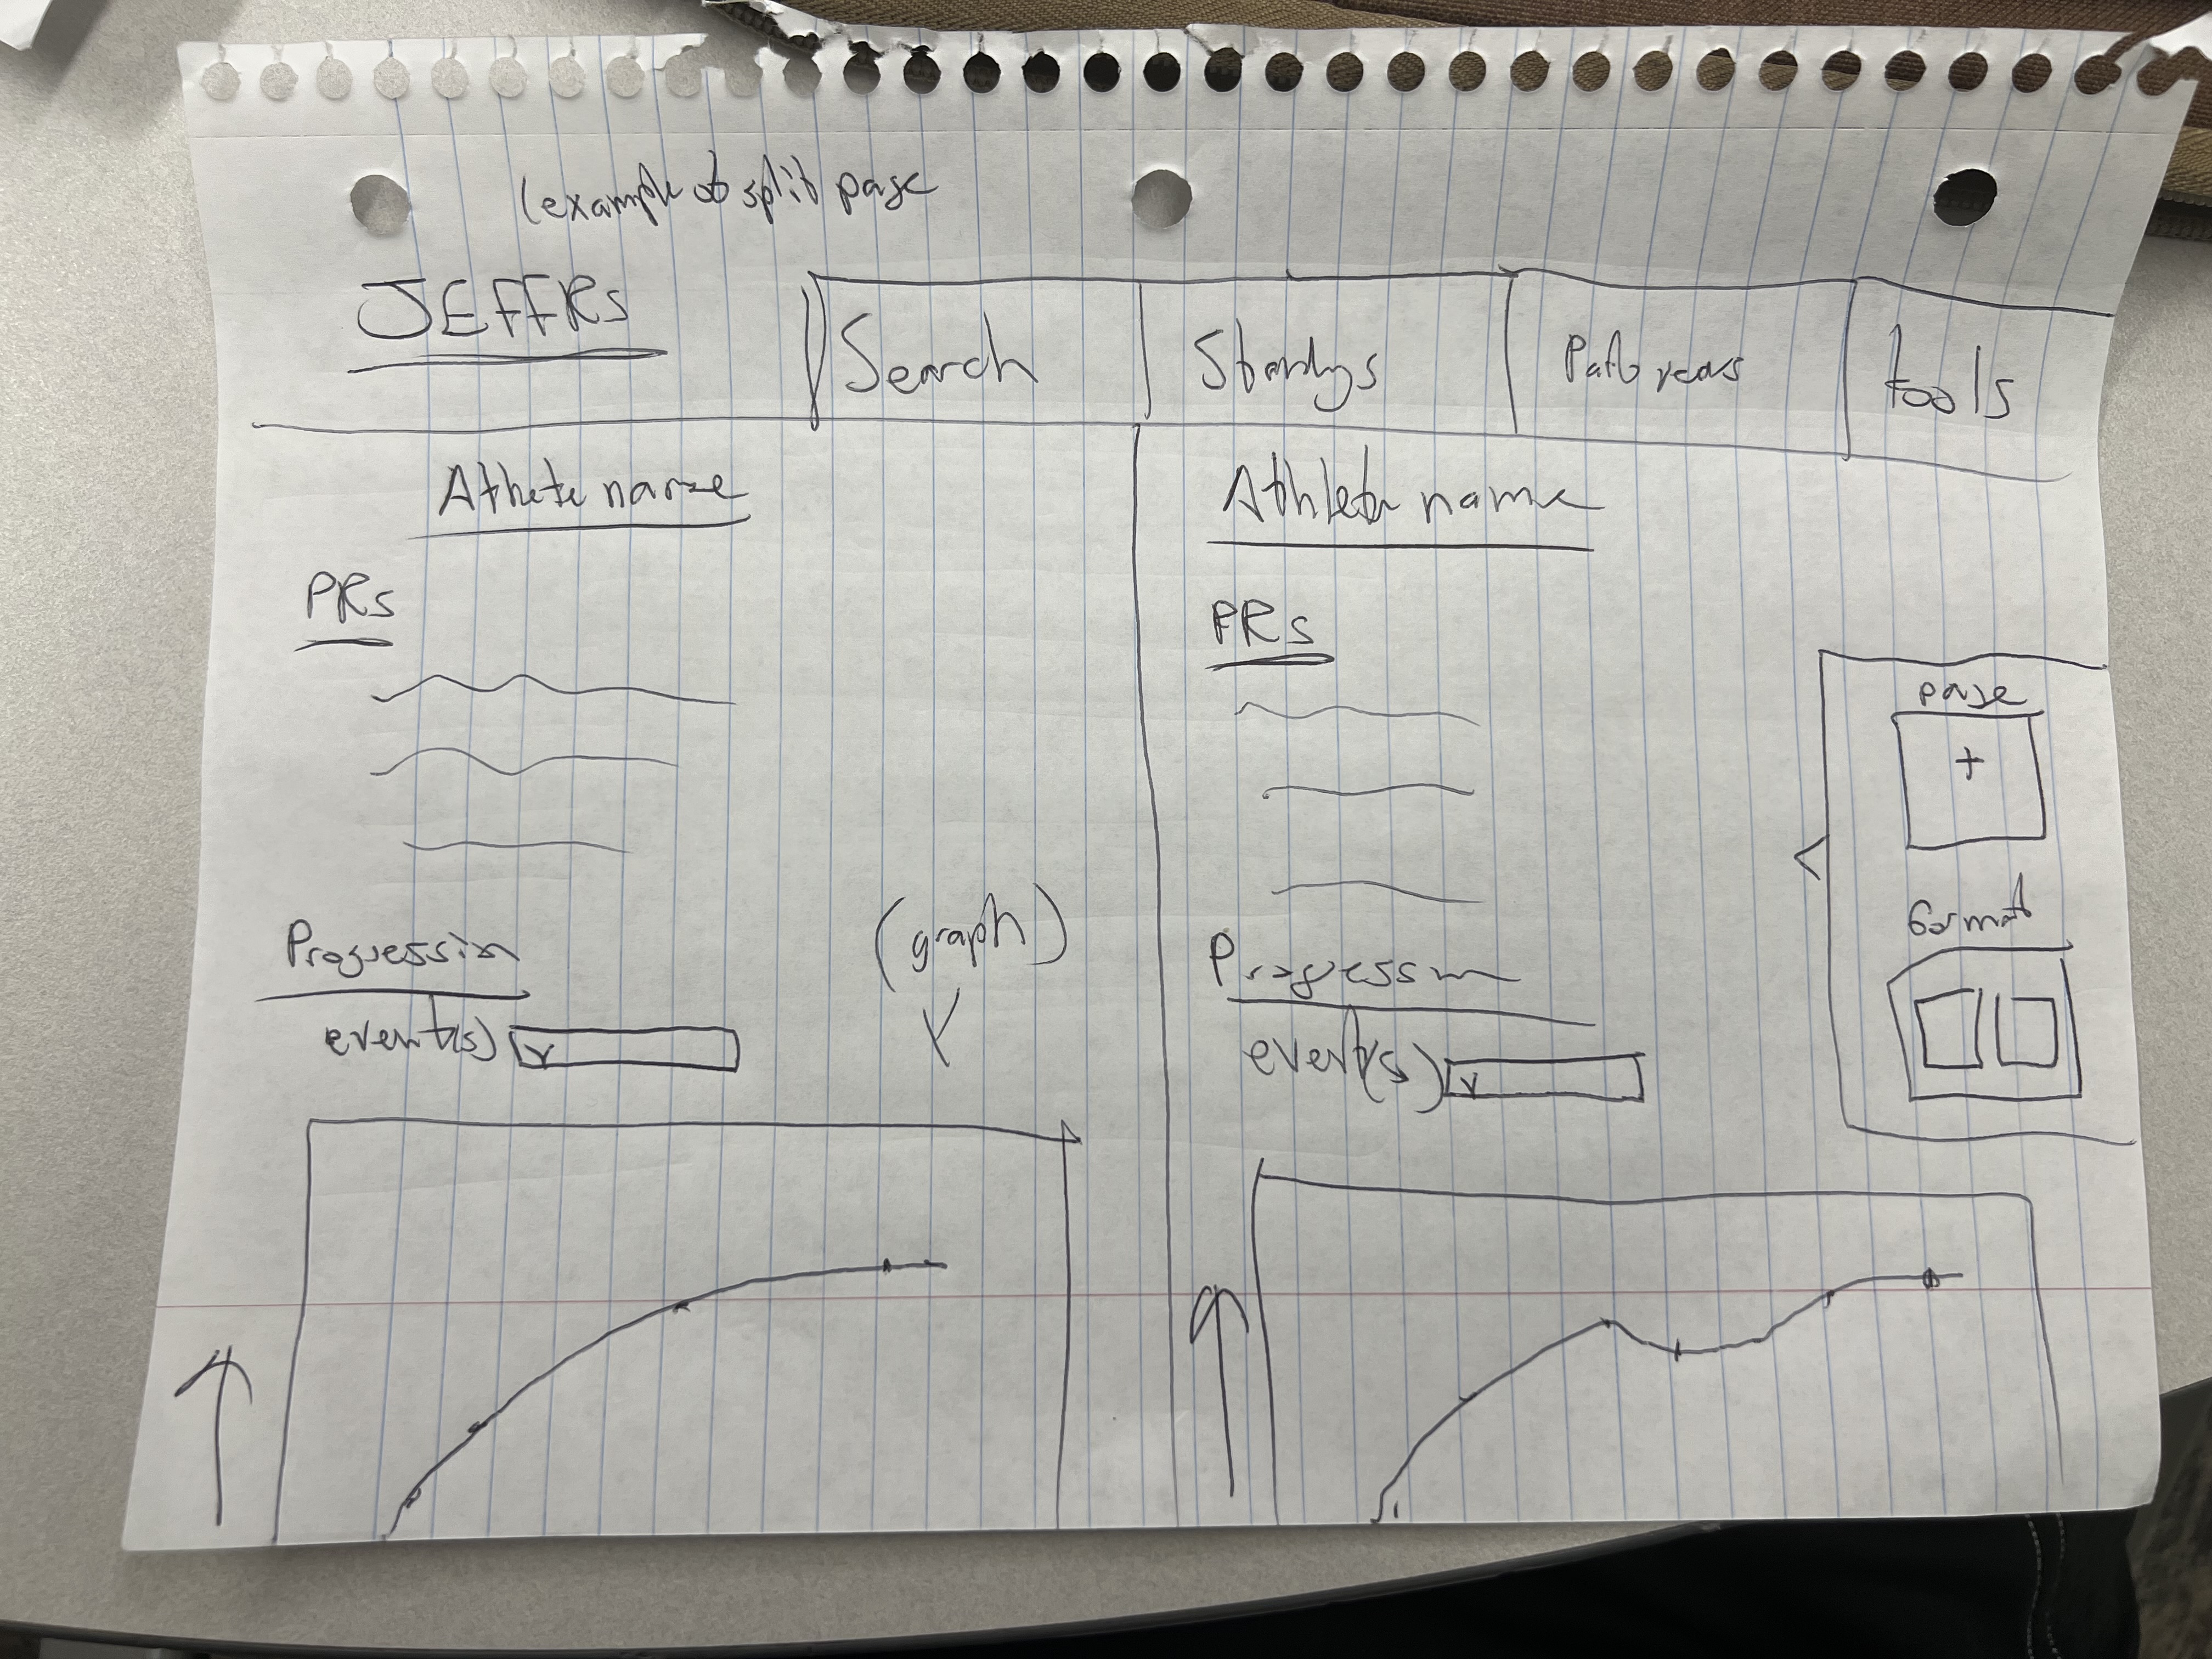 (example of split page
JEFFRs
Search
Standings
Path recs
tools
Athlete name
PRs
Progression
event(s)
(graph)
Athlete name
PRs
Progression
event(s)
page
+
format